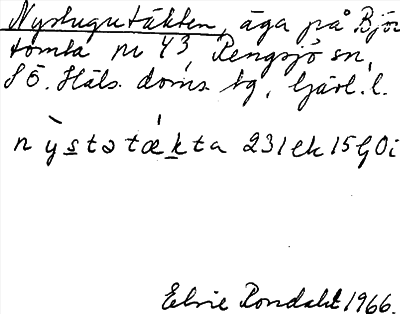 Nystugutäkten, äga på Björ
tomta nr 43, Rengsjö sn,
SÖ. Häls. doms. tg, Gävl. l.
n ỳ s t ə t ǽ k t a 231 ek 15 G0i
Elvie Rondahl 1966.